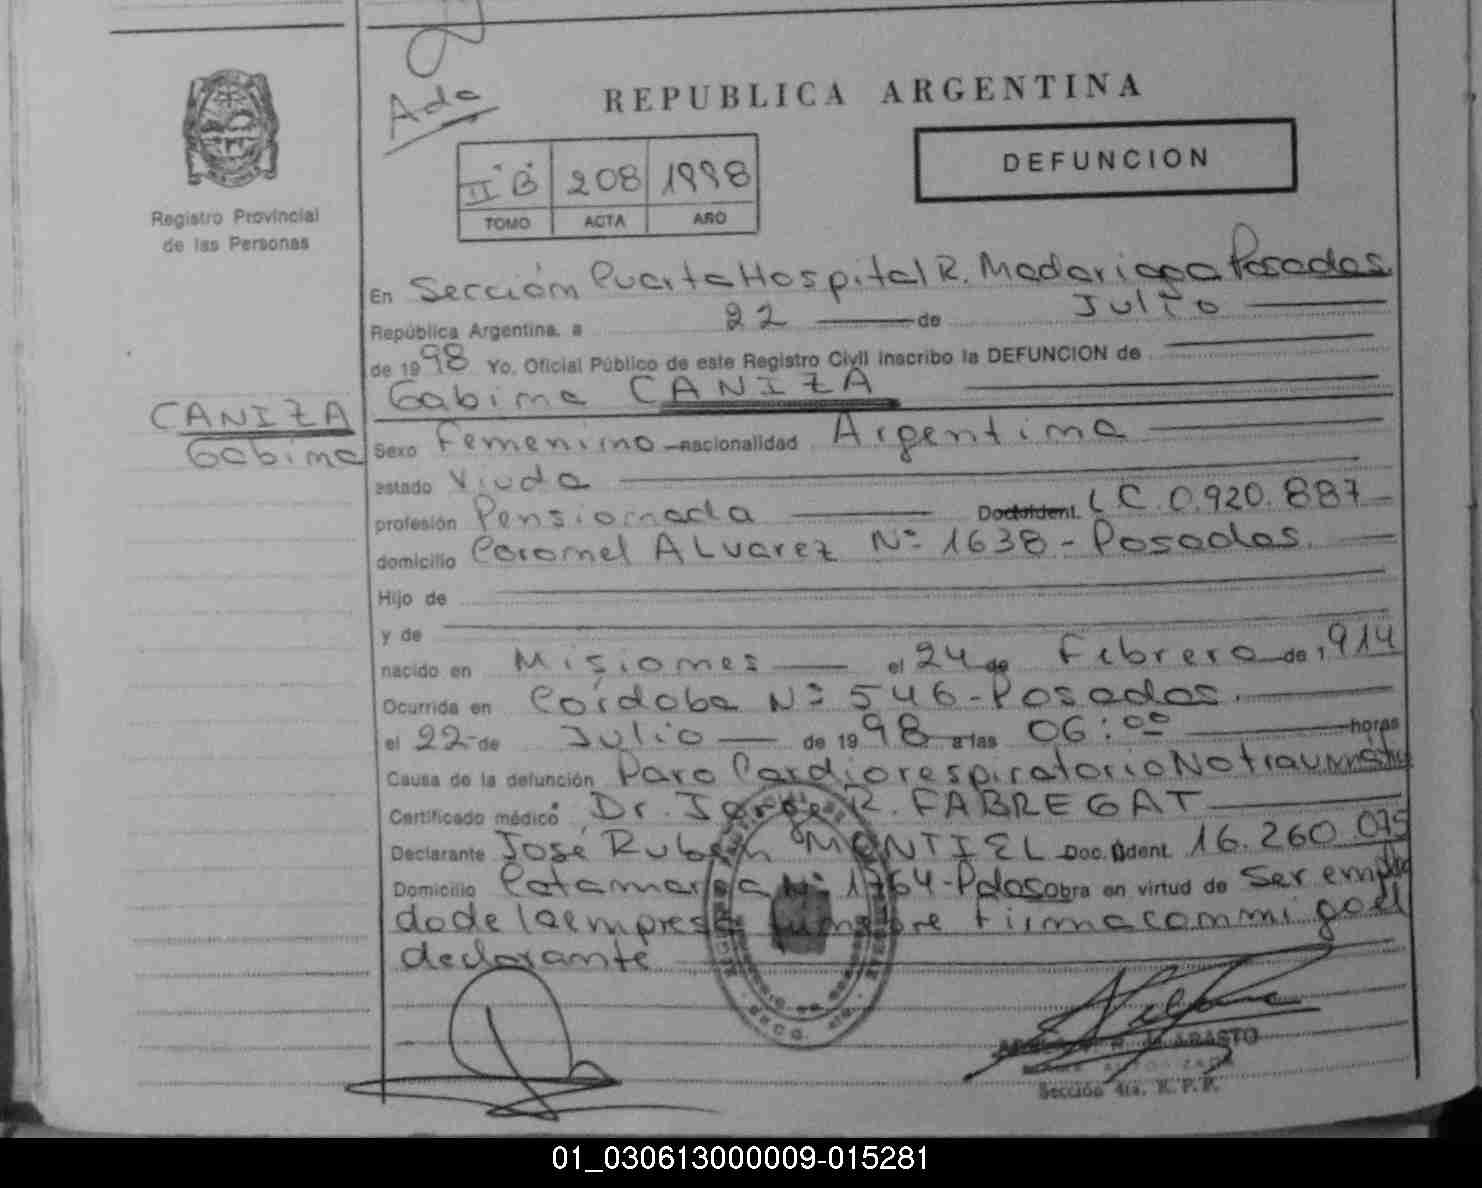 Ada
REPUBLICA ARGENTINA
II B 208 1998
TOMO ACTA AÑO
DEFUNCION
Registro Provincial
de las Personas
En Sección Puerta Hospital R. Madariaga Posadas
República Argentina, a 22 de Julio
de 1998 Yo, Oficial Público de este Registro Civil inscribo la DEFUNCION de
Gabina CANIZA
CANIZA
Gabina
Sexo Femenino nacionalidad Argentina
estado Viuda
profesión Pensionada Doc. Ident. LC. 0.920.887
domicilio Coronel ALvarez Nº 1638 - Posadas.
Hijo de
y de
nacido en Misiones el 24 de Febrero de 1,914
Ocurrida en Córdoba Nº 546 - Posadas.
el 22 de Julio de 1998 a las 06:00 horas
Causa de la defunción Paro Cardiorespiratorio No traumático
Certificado médico Dr. Jorge R. FABREGAT
Declarante José Rubén MONTIEL Doc. Ident. 16.260.075
Domicilio Catamarca Nº 1764 - Pdas obra en virtud de Ser emplea
do de la empresa fúnebre firma conmigo el
declarante
Sección 4ta. R. P. P.
01_030613000009-015281